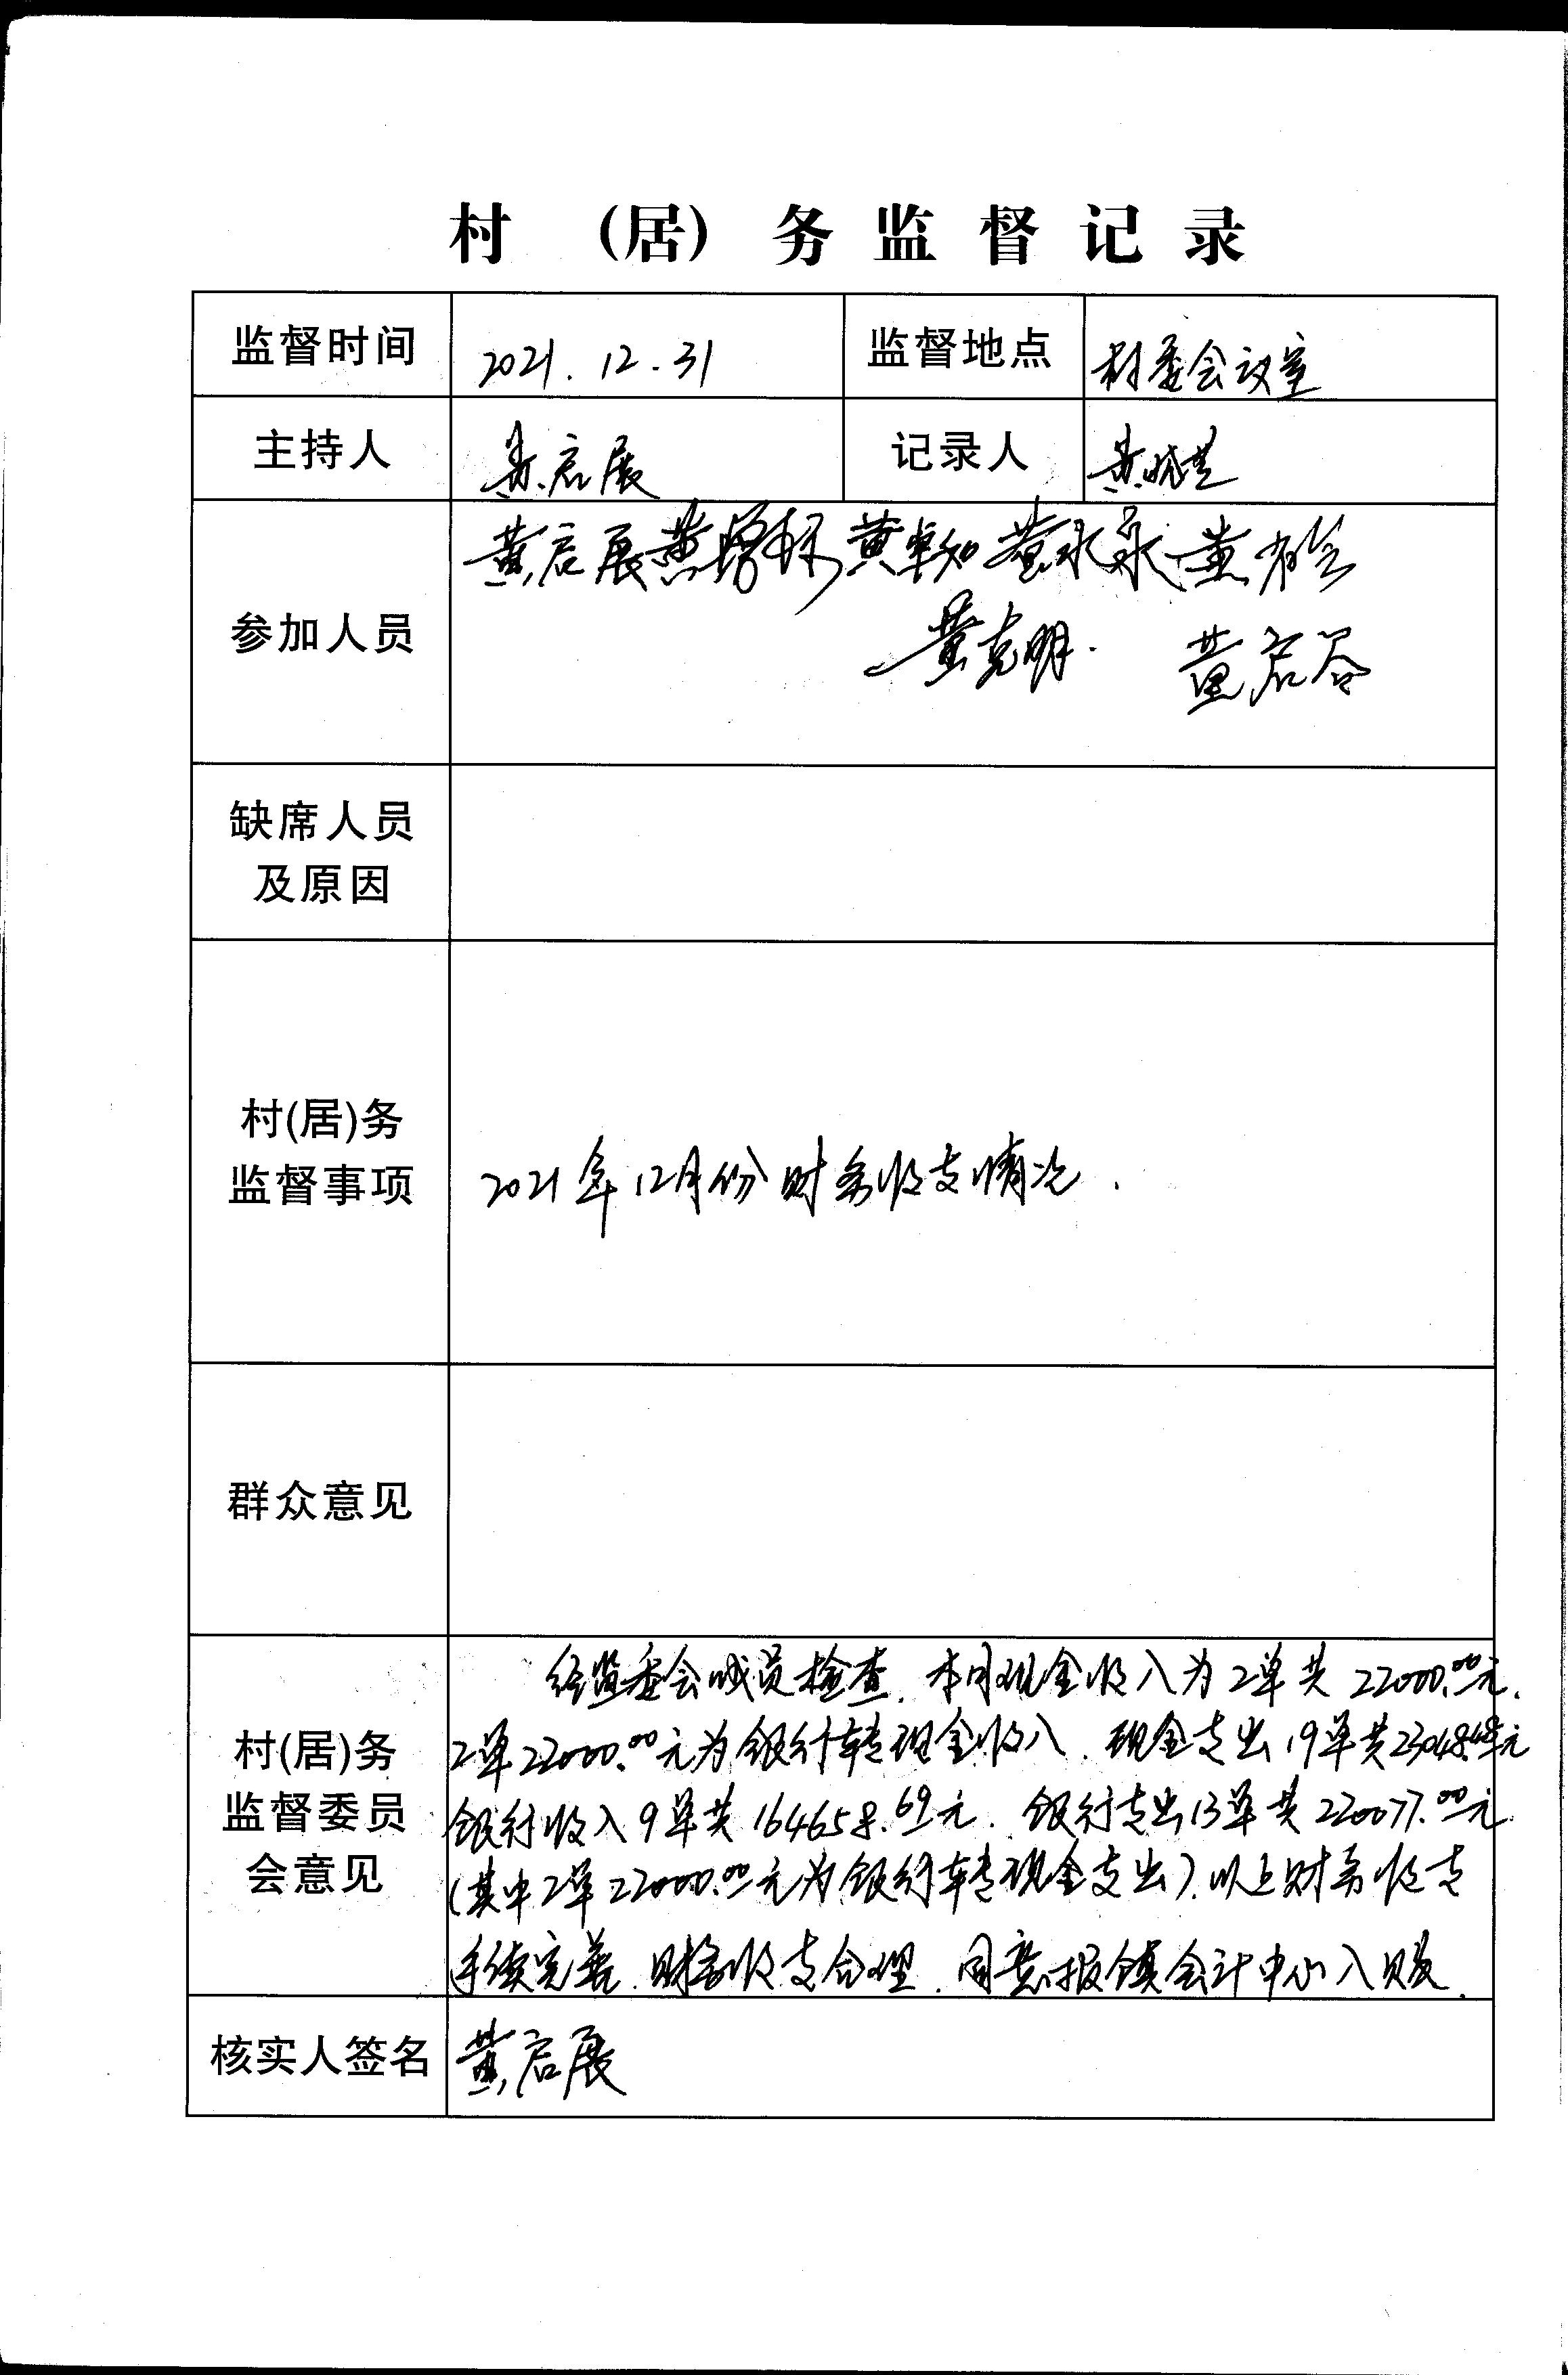 村 (居) 务监督记录
监督时间 2021.12.31 监督地点 村委会议室
主持人 黄启展 记录人 黄
黄启展 黄增标 黄卓知 黄永 黄
参加人员
黄克明 黄启谷
缺席人员
及原因
村(居)务
监督事项 2021年12月份财务收支情况.
群众意见
经监委会成员检查,本月现金收入为2单共22000.00元,
村(居)务 2单22000.00元为银行转现金收入,现金支出19单共23048.48元
监督委员 银行收入9单共164658.69元,银行支出13单共220077.00元
会意见 (其中2单22000.00元为银行转现金支出),以上财务收支
手续完善,财务收支合理,同意报镇会计中心入账.
核实人签名 黄启展